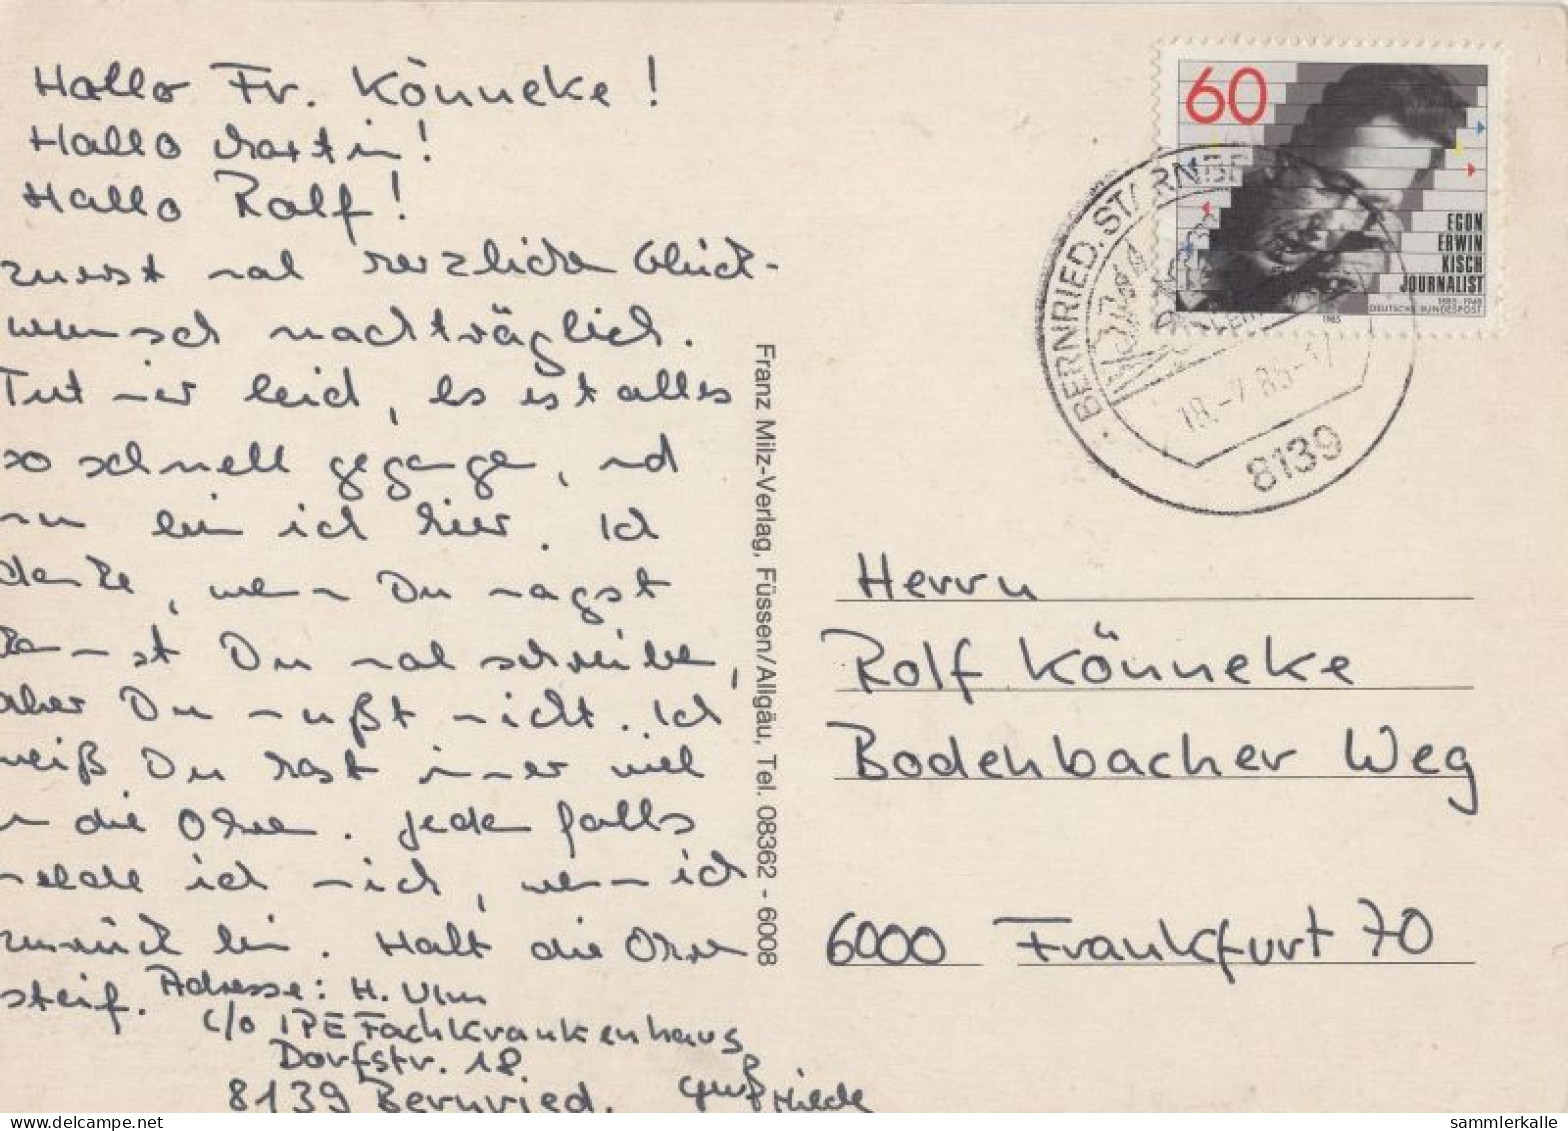 Hallo Fr. Könneke!
Hallo Martin!
Hallo Rolf!
zuerst mal herzlichen Glück-
wunsch nachträglich.
Tut mir leid, es ist alles
so schnell gegangen, und
nun bin ich hier. Ich
denke, wenn Du magst
kannst Du mal schreiben,
aber Du mußt nicht. Ich
weiß Du hast immer viel
um die Ohren. Jeden falls
melde ich mich, wenn ich
zurück bin. Halt die Ohren
steif.
Adresse: H. Ulm
c/o IPE Fachkrankenhaus
Dorfstr. 18
8139 Bernried.
Gruß Hilde
Franz Milz-Verlag, Füssen/Allgäu, Tel. 08362 - 6008
60
EGON
ERWIN
KISCH
JOURNALIST
1885-1948
DEUTSCHE BUNDESPOST
1985
BERNRIED, STARNBE
18.-7.85-17
8139
Herrn
Rolf Könneke
Bodenbacher Weg
6000 Frankfurt 70
sammlerkalle